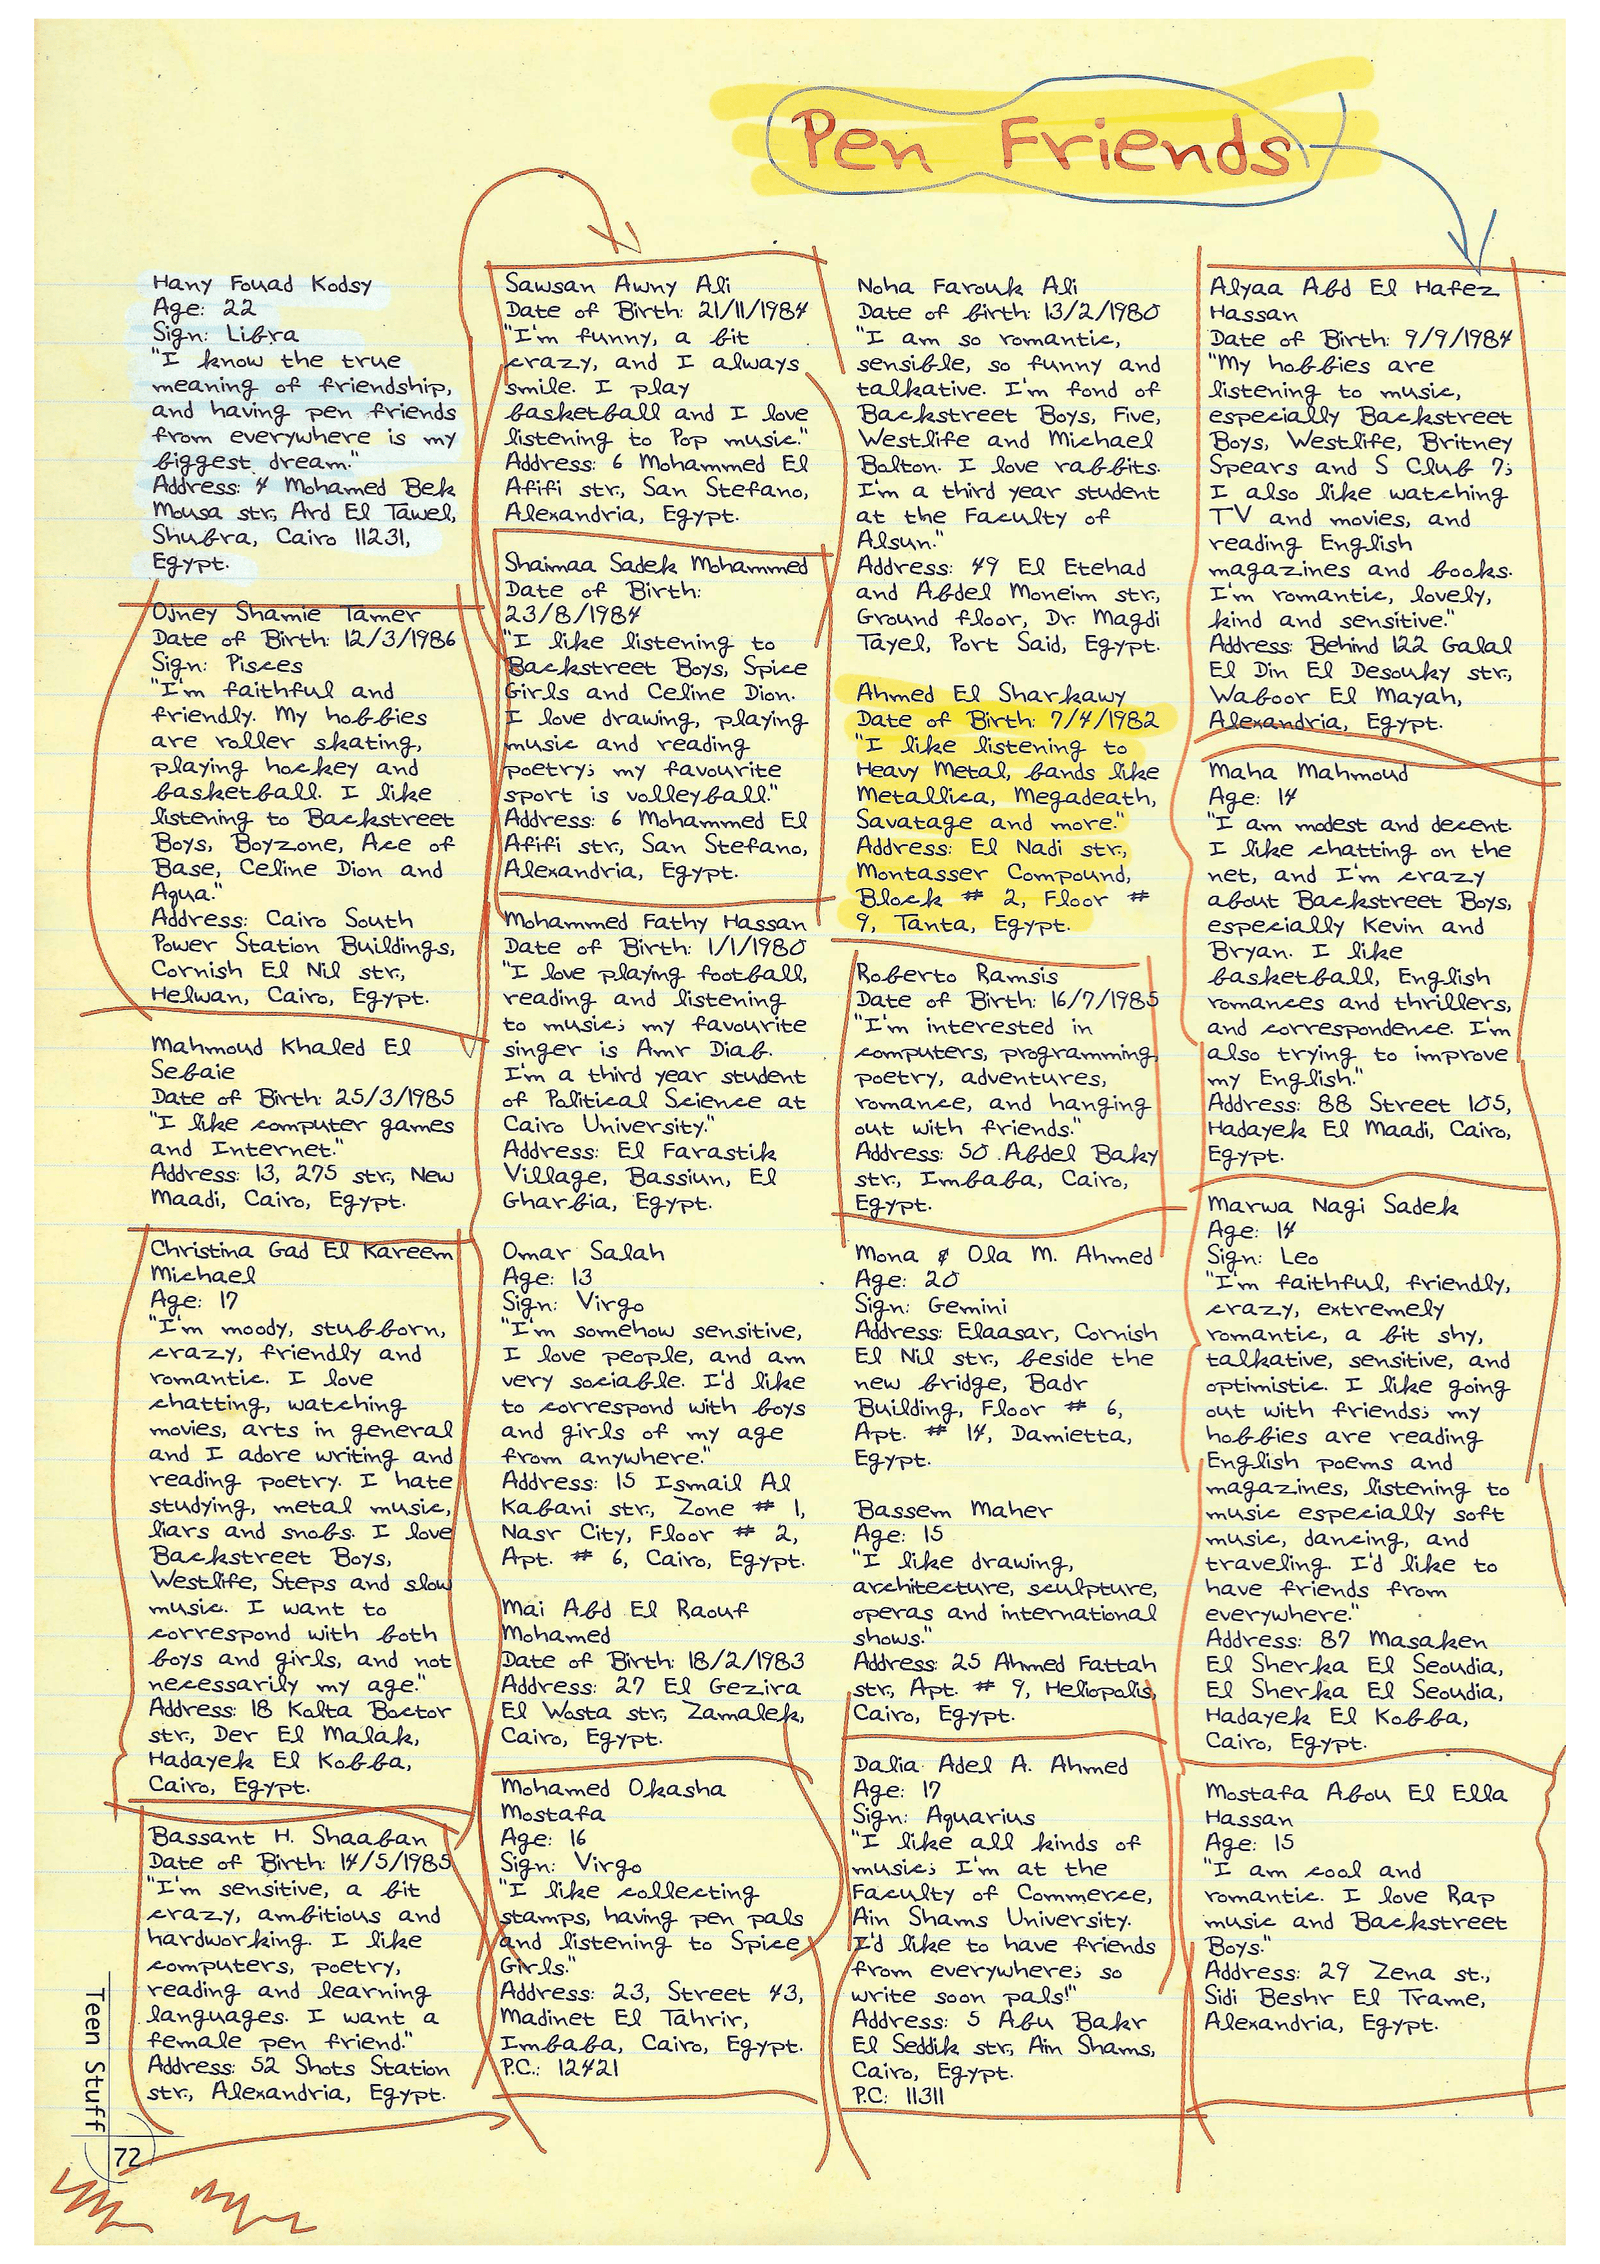 Pen Friends
Hany Fouad Kodsy
Age: 22
Sign: Libra
"I know the true
meaning of friendship,
and having pen friends
from everywhere is my
biggest dream."
Address: 4 Mohamed Bek
Mousa str., Ard El Tawel,
Shubra, Cairo 11231,
Egypt.
Ojney Shamie Tamer
Date of Birth: 12/3/1986
Sign: Pisces
"I'm faithful and
friendly. My hobbies
are roller skating,
playing hockey and
basketball. I like
listening to Backstreet
Boys, Boyzone, Ace of
Base, Celine Dion and
Aqua."
Address: Cairo South
Power Station Buildings,
Cornish El Nil str.,
Helwan, Cairo, Egypt.
Mahmoud Khaled El
Sebaie
Date of Birth: 25/3/1985
"I like computer games
and Internet."
Address: 13, 275 str., New
Maadi, Cairo, Egypt.
Christina Gad El Kareem
Michael
Age: 17
"I'm moody, stubborn,
crazy, friendly and
romantic. I love
chatting, watching
movies, arts in general
and I adore writing and
reading poetry. I hate
studying, metal music,
liars and snobs. I love
Backstreet Boys,
Westlife, Steps and slow
music. I want to
correspond with both
boys and girls, and not
necessarily my age."
Address: 18 Kolta Boctor
str., Der El Malak,
Hadayek El Kobba,
Cairo, Egypt.
Bassant H. Shaaban
Date of Birth: 14/5/1985
"I'm sensitive, a bit
crazy, ambitious and
hardworking. I like
computers, poetry,
reading and learning
languages. I want a
female pen friend."
Address: 52 Shots Station
str., Alexandria, Egypt.
Sawsan Awny Ali
Date of Birth: 21/11/1984
"I'm funny, a bit
crazy, and I always
smile. I play
basketball and I love
listening to Pop music."
Address: 6 Mohammed El
Afifi str., San Stefano,
Alexandria, Egypt.
Shaimaa Sadek Mohammed
Date of Birth:
23/8/1984
"I like listening to
Backstreet Boys, Spice
Girls and Celine Dion.
I love drawing, playing
music and reading
poetry; my favourite
sport is volleyball."
Address: 6 Mohammed El
Afifi str., San Stefano,
Alexandria, Egypt.
Mohammed Fathy Hassan
Date of Birth: 1/1/1980
"I love playing football,
reading and listening
to music; my favourite
singer is Amr Diab.
I'm a third year student
of Political Science at
Cairo University."
Address: El Farastik
Village, Bassiun, El
Gharbia, Egypt.
Omar Salah
Age: 13
Sign: Virgo
"I'm somehow sensitive,
I love people, and am
very sociable. I'd like
to correspond with boys
and girls of my age
from anywhere."
Address: 15 Ismail Al
Kabani str., Zone # 1,
Nasr City, Floor # 2,
Apt. # 6, Cairo, Egypt.
Mai Abd El Raouf
Mohamed
Date of Birth: 18/2/1983
Address: 27 El Gezira
El Wosta str., Zamalek,
Cairo, Egypt.
Mohamed Okasha
Mostafa
Age: 16
Sign: Virgo
"I like collecting
stamps, having pen pals
and listening to Spice
Girls."
Address: 23, Street 43,
Madinet El Tahrir,
Imbaba, Cairo, Egypt.
P.C.: 12421
Noha Farouk Ali
Date of birth: 13/2/1980
"I am so romantic,
sensible, so funny and
talkative. I'm fond of
Backstreet Boys, Five,
Westlife and Michael
Bolton. I love rabbits.
I'm a third year student
at the Faculty of
Alsun."
Address: 49 El Etehad
and Abdel Moneim str.,
Ground floor, Dr. Magdi
Tayel, Port Said, Egypt.
Ahmed El Sharkawy
Date of Birth: 7/4/1982
"I like listening to
Heavy Metal, bands like
Metallica, Megadeath,
Savatage and more."
Address: El Nadi str.,
Montasser Compound,
Block # 2, Floor #
9, Tanta, Egypt.
Roberto Ramsis
Date of Birth: 16/7/1985
"I'm interested in
computers, programming,
poetry, adventures,
romance, and hanging
out with friends."
Address: 50 Abdel Baky
str., Imbaba, Cairo,
Egypt.
Mona & Ola M. Ahmed
Age: 20
Sign: Gemini
Address: Elaasar, Cornish
El Nil str., beside the
new bridge, Badr
Building, Floor # 6,
Apt. # 14, Damietta,
Egypt.
Bassem Maher
Age: 15
"I like drawing,
architecture, sculpture,
operas and international
shows."
Address: 25 Ahmed Fattah
str., Apt. # 9, Heliopolis,
Cairo, Egypt.
Dalia Adel A. Ahmed
Age: 17
Sign: Aquarius
"I like all kinds of
music; I'm at the
Faculty of Commerce,
Ain Shams University.
I'd like to have friends
from everywhere; so
write soon pals!"
Address: 5 Abu Bakr
El Seddik str., Ain Shams,
Cairo, Egypt.
P.C: 11311
Alyaa Abd El Hafez
Hassan
Date of Birth: 9/9/1984
"My hobbies are
listening to music,
especially Backstreet
Boys, Westlife, Britney
Spears and S Club 7;
I also like watching
TV and movies, and
reading English
magazines and books.
I'm romantic, lovely,
kind and sensitive."
Address: Behind 122 Galal
El Din El Desouky str.,
Waboor El Mayah,
Alexandria, Egypt.
Maha Mahmoud
Age: 14
"I am modest and decent.
I like chatting on the
net, and I'm crazy
about Backstreet Boys,
especially Kevin and
Bryan. I like
basketball, English
romances and thrillers,
and correspondence. I'm
also trying to improve
my English."
Address: 88 Street 105,
Hadayek El Maadi, Cairo,
Egypt.
Marwa Nagi Sadek
Age: 14
Sign: Leo
"I'm faithful, friendly,
crazy, extremely
romantic, a bit shy,
talkative, sensitive, and
optimistic. I like going
out with friends; my
hobbies are reading
English poems and
magazines, listening to
music especially soft
music, dancing, and
traveling. I'd like to
have friends from
everywhere."
Address: 87 Masaken
El Sherka El Seoudia,
El Sherka El Seoudia,
Hadayek El Kobba,
Cairo, Egypt.
Mostafa Abou El Ella
Hassan
Age: 15
"I am cool and
romantic. I love Rap
music and Backstreet
Boys."
Address: 29 Zena st.,
Sidi Beshr El Trame,
Alexandria, Egypt.
Teen Stuff
72